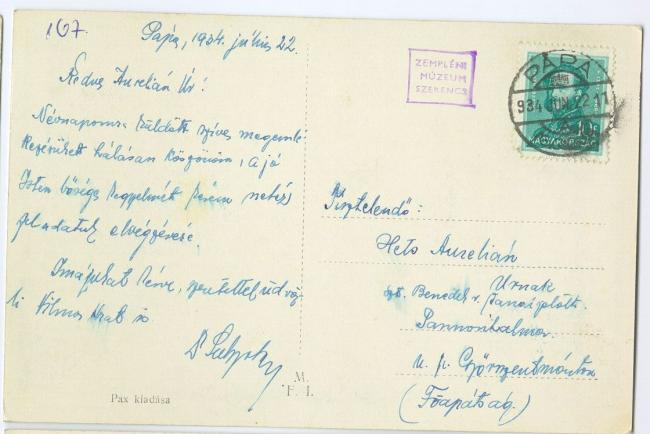 167.
Pápa, 1934. július 22.
Kedves Aurelián Úr!
Névnapomra küldött szíves megemlé-
kezésüket hálásan köszönöm, a jó
Isten bőséges kegyelmét kérem nehéz
feladatuk elvégzésére.
Imáikat kérve, szeretettel üdvöz-
li Vilmos
Pax kiadása
M.
F. I.
ZEMPLÉNI
MÚZEUM
SZERENCS
PÁPA
934 JUN. 22 11
10
MAGYARORSZÁG
Tisztelendő:
Heto Aurelián
Urnak
szt. Benedek r.
Pannonhalma
u. p. Győrszentmárton
(Főapátság.)